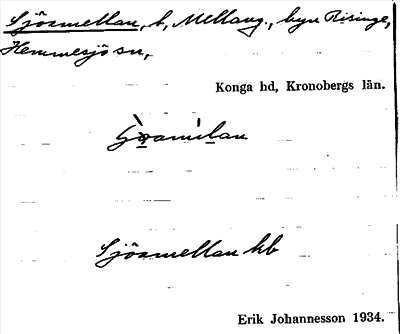 Sjöamellan, t, Mellang., byn Risinge,
Hemmesjö sn,
Konga hd, Kronobergs län.
Sjöamellan hb
Erik Johannesson 1934.